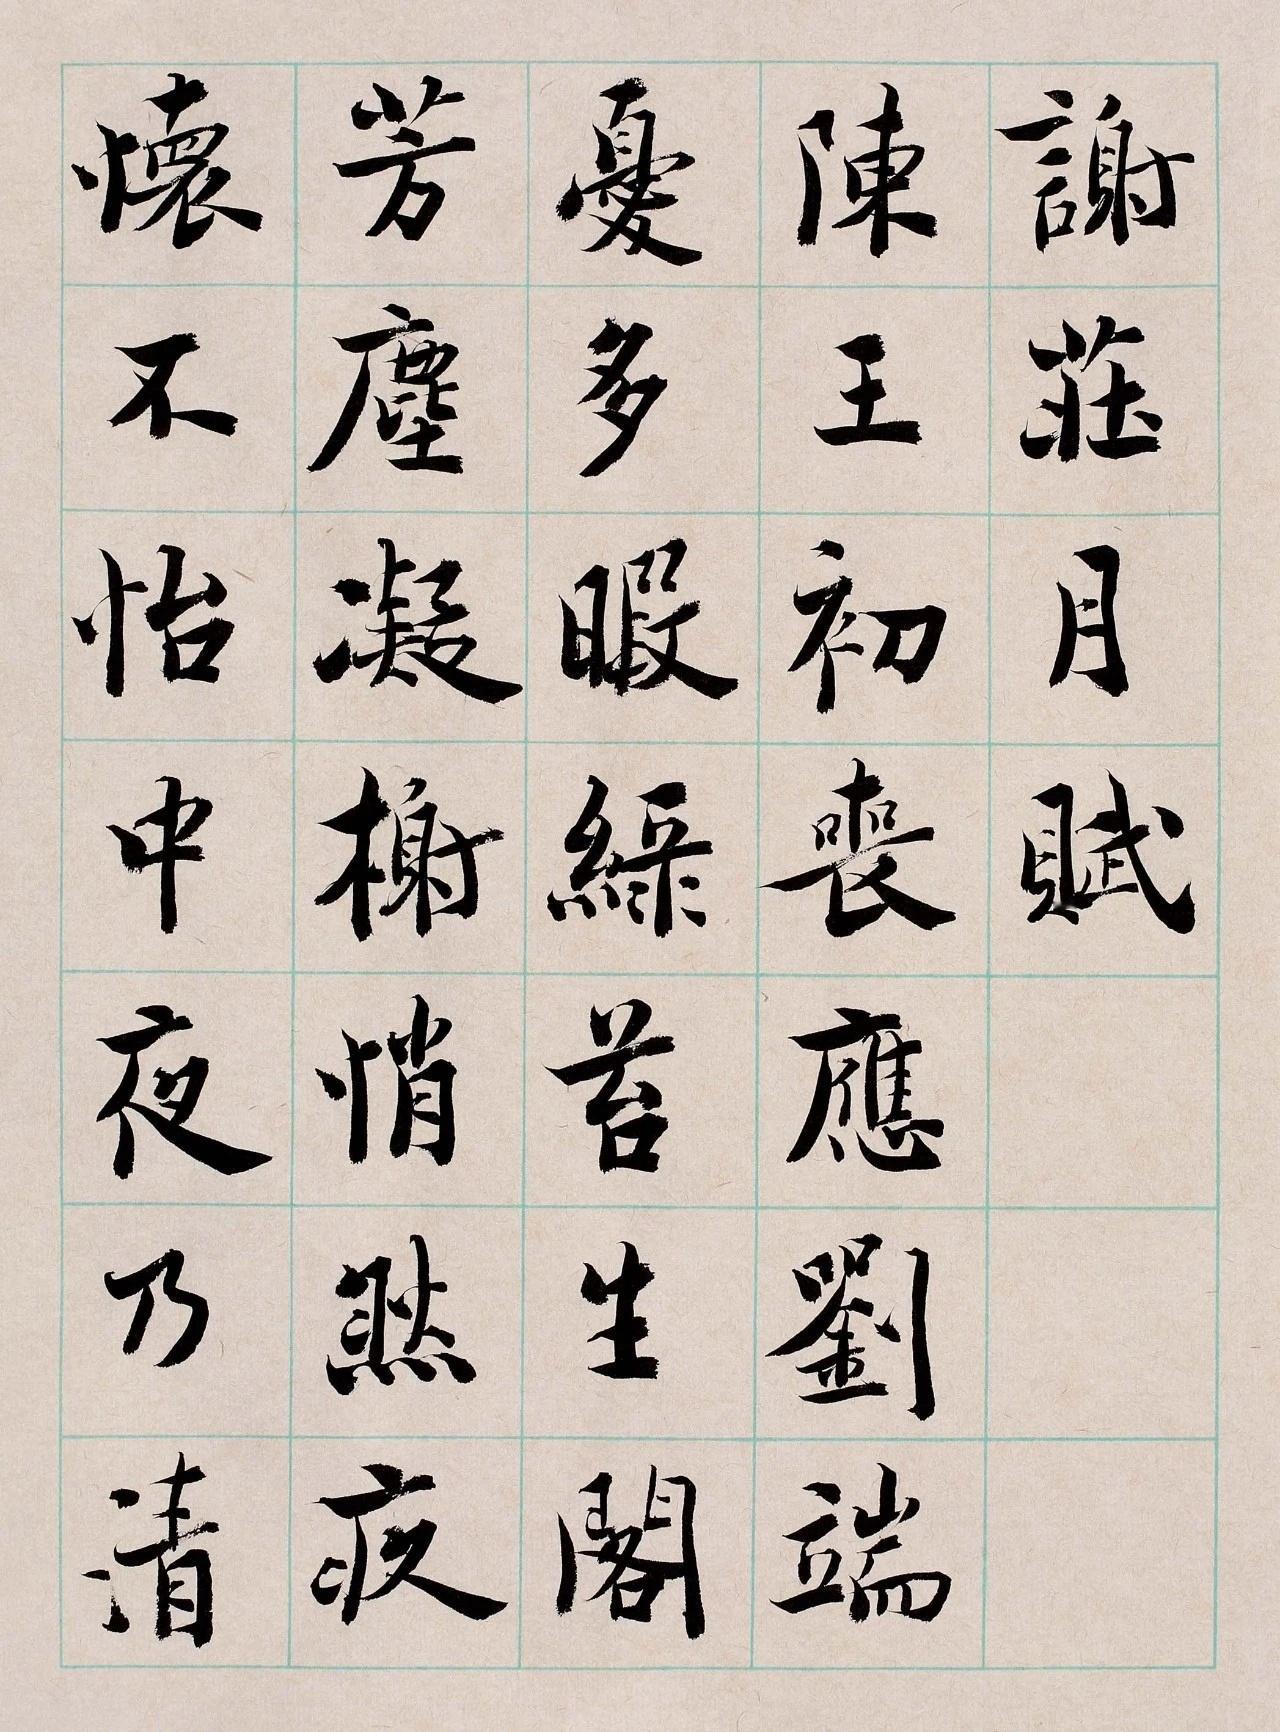 謝莊月賦
陳王初喪應劉端
憂多暇綠苔生閣
芳塵凝榭悄然疚
懷不怡中夜乃清